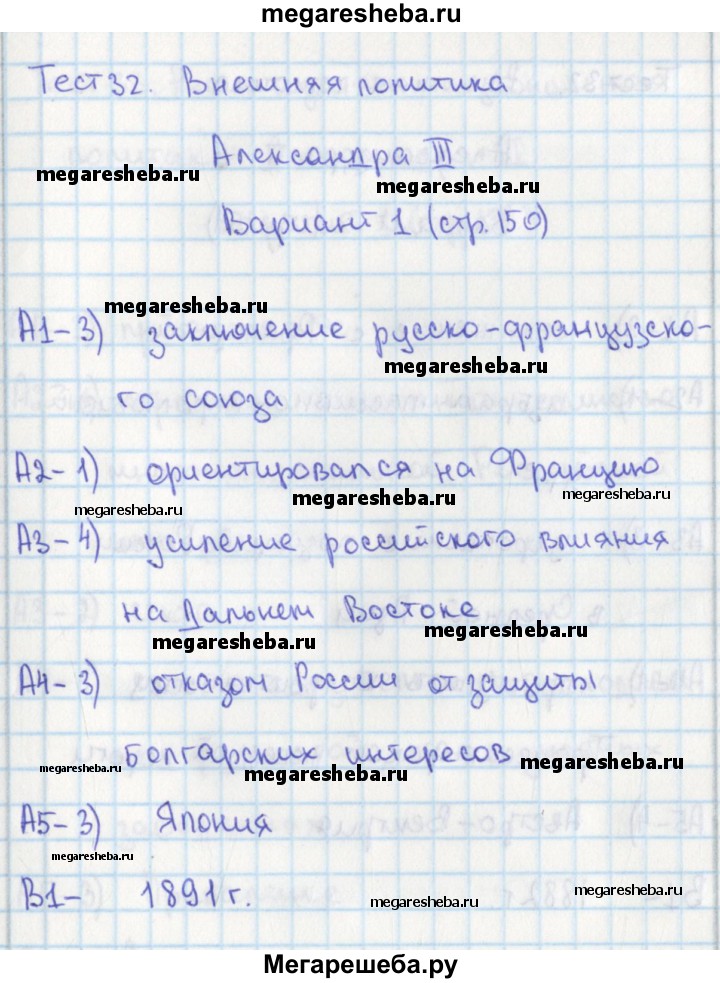 megaresheba.ru
Тест 32. Внешняя политика
Александра III
megaresheba.ru
megaresheba.ru
Вариант 1 (стр. 150)
megaresheba.ru
А1-3) заключение русско-французско-
megaresheba.ru
го союза
А2-1) ориентировался на Францию
megaresheba.ru
megaresheba.ru
megaresheba.ru
А3-4) усиление российского влияния
на Дальнем Востоке
megaresheba.ru
megaresheba.ru
А4-3) отказом России от защиты
megaresheba.ru
болгарских интересов
megaresheba.ru
megaresheba.ru
megaresheba.ru
А5-3) Япония
megaresheba.ru
В1- 1891 г.
megaresheba.ru
megaresheba.ru
Мегарешеба.ру